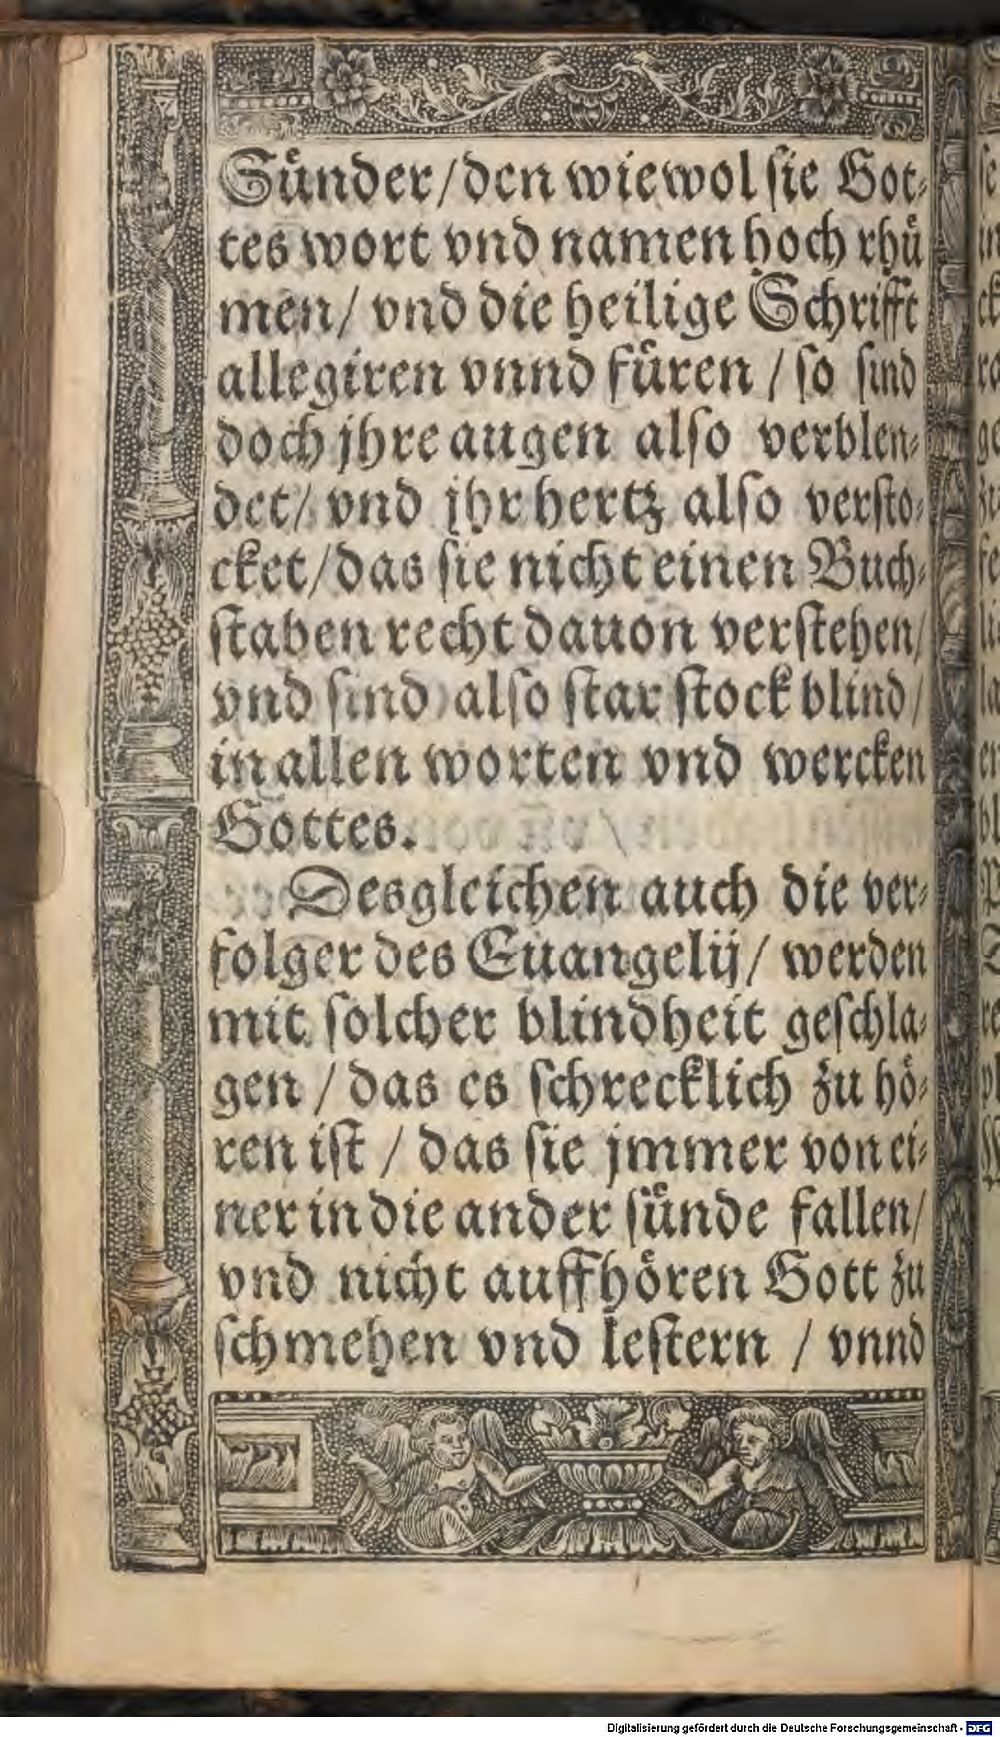 Suͤnder/den wiewol ſie Got⸗
tes wort vnd namen hoch rhuͤ
men/ vnd die heilige Schrifft
allegiren vnnd fuͤren / ſo ſind
doch jhre augen alſo verblen⸗
det/ vnd jhr hertz alſo verſto⸗
cket/das ſie nicht einen Buch⸗
ſtaben recht dauon verſtehen/
vnd ſind alſo ſtar ſtock blind/
in allen worten vnd wercken
Gottes.
Desgleichen auch die ver⸗
folger des Euangelij/ werden
mit ſolcher blindheit geſchla⸗
gen / das es ſchrecklich zu hoͤ⸗
ren iſt / das ſie jmmer von ei⸗
ner in die ander ſuͤnde fallen/
vnd nicht auffhoͤren Gott zu
ſchmehen vnd leſtern / vnnd
Digitalisierung gefördert durch die Deutsche Forschungsgemeinschaft - DFG